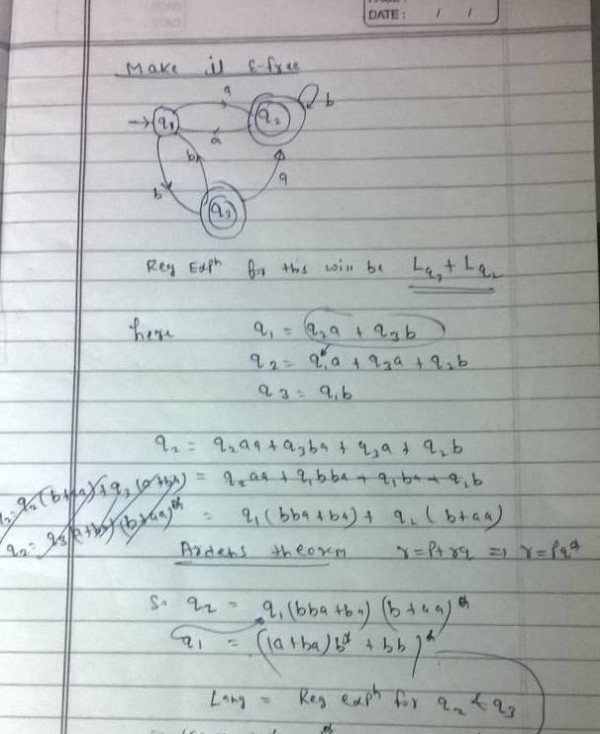 DATE: / /
Make it ε-free
a
q₁
q₂
b
a
b
b
a
q₃
Reg Expⁿ for this will be Lq₃ + Lq₂
here q₁ = q₂a + q₃b
q₂ = q₁a + q₃a + q₂b
q₃ = q₁b
q₂ = q₂aa + q₃ba + q₃a + q₂b
= q₂aa + q₁bba + q₁ba + q₂b
= q₁(bba+ba) + q₂(b+aa)
Ardens theorem r = P+rq ⇒ r = Pq*
So q₂ = q₁(bba+ba)(b+aa)*
q₁ = ((a+ba)b* + bb)*
Lang = Reg expⁿ for q₂ & q₃